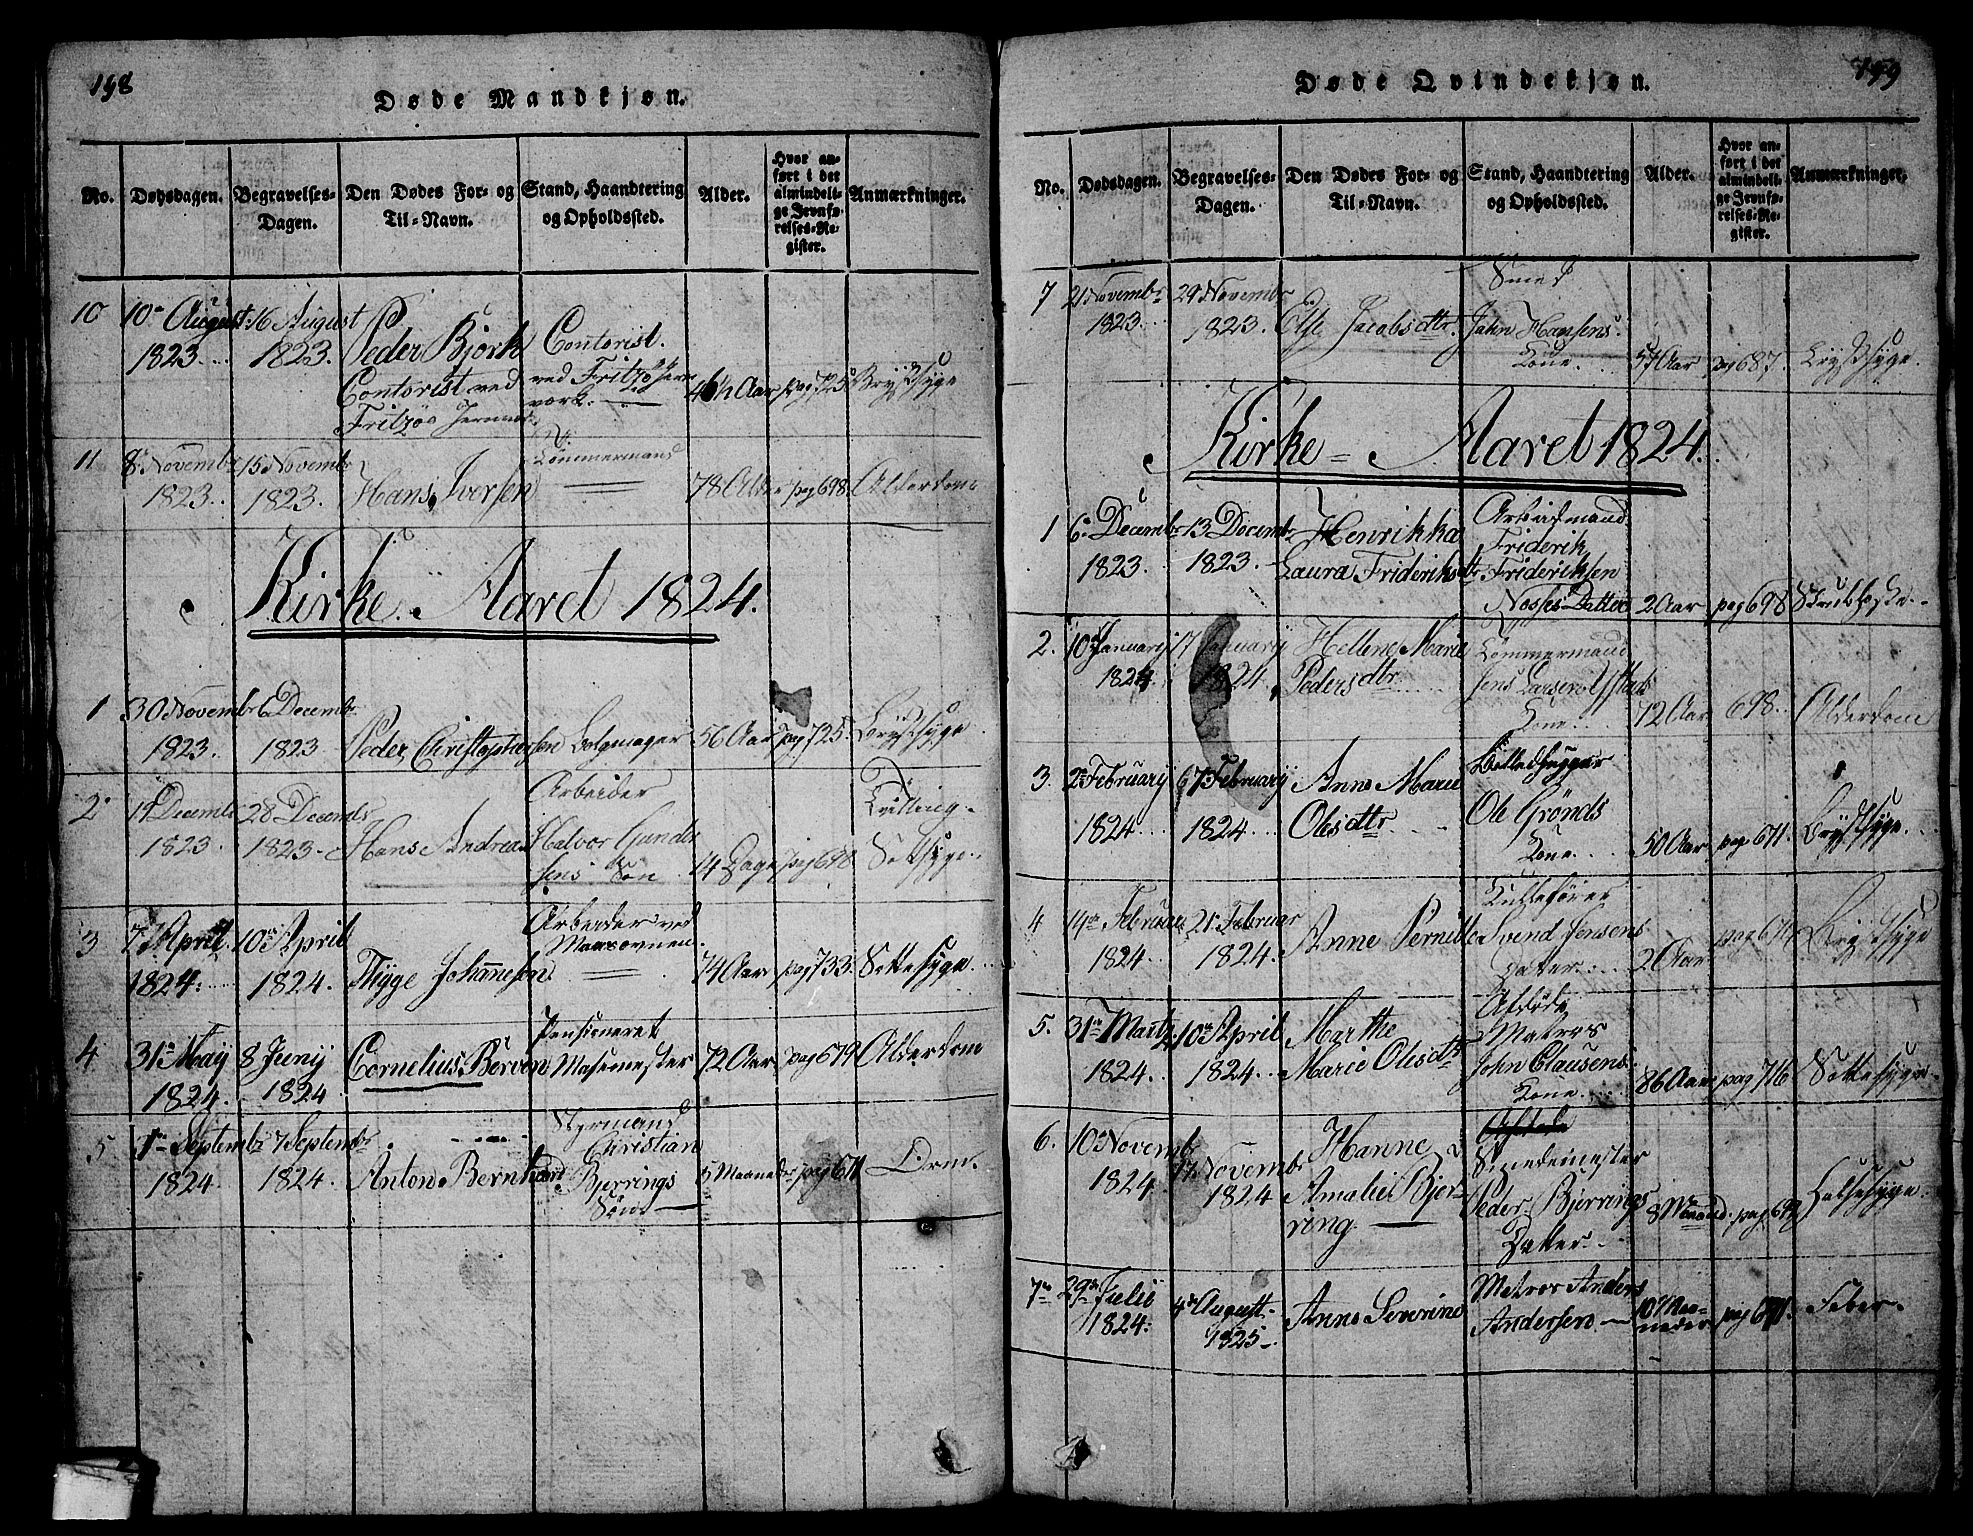 198
Døde Mandkjøn.
No.
Dødsdagen.
Begravelses-
Dagen.
Den Dødes For- og
Til-Navn.
Stand, Haandtering
og Opholdssted.
Alder.
Hvor an-
ført i det
almindeli-
ge Jevnfø-
relses-Re-
gister.
Anmærkninger.
10
10de August
1823
16 August
1823.
Peder Bjørk
Contorist ved
Fritzøe Jernværk
Contorist.
ved Fritzøe Jern-
værk.
46½ Aar
pag 725
Brystsyge
11
8 Novembr
1823.
15 Novembr
1823.
Hans Iversen
Tømmermand
78 Aar
pag 698
Alderdom
Kirke-Aaret 1824.
1
30 Novembr
1823.
6 Decembr
1823
Peder Christophersen
Bælgmager
56 Aar
pag 725.
Brystsyge
2
Decembr
1823
28 Decembr
1823.
Hans Andreas
Arbeider
Halvor Gunder
sens Søn
14 Dage
pag 698
Tvilling-
Sottsyge
3
7 April
1824.
10de April
1824.
Thygge Johannesen
Arbeider ved
Masovnen.
74 Aar
pag 733.
Sottesyge
4
31te May
1824.
8 Juny
1824
Cornelius Børven
Pensioneret
Masemester
72 Aar
pag 679
Alderdom
5
1te Septembr
1824
7 Septembr
1824.
Anton Bernhard
Styrmand
Christian
Bjerrings
Søn
5 Maaneder
pag 671
Orm.
199
Døde Qvindekjøn.
No.
Dødsdagen.
Begravelses-
Dagen.
Den Dødes For- og
Til-Navn.
Stand, Haandtering
og Opholdssted.
Alder.
Hvor an-
ført i det
almindeli-
ge Jevnfø-
relses-Re-
gister.
Anmærkninger.
7
21 Novembr
1823
29 Novembr
1823.
Else Jacobsdtr.
Smed
Jahn Hansens
Kone.
57 Aar
pag 687.
Brystsyge.
Kirke-Aaret 1824.
1
6 Decembr
1823
13 Decembr
1823.
Henrikka
Laura Frideriksdtr
Arbeidsmand
Friderik
Frideriksen
Nosses Datter
2 Aar
pag 698
Strubhoste.
2.
10 January
1824.
17 January
1824.
Hellene Marie
Pedersdtr
Tømmermand
Jens Larsen
Kone.
72 Aar
698.
Alderdom
3.
2 February
1824
February
1824.
Anne Marie
Olesdtr.
Billedhugger
Ole Grønds
Kone.
50 Aar
pag 671.
Brystsyge.
4
14de Februar
1824.
21 Februar
1824.
Anne Pernille
Kullefører
Svend Jensens
Dater.
2 Aar
pag 674
Brystsyge
5.
31te Martz
1824.
10de April
1824.
Marthe
Marie Olesdtr
Afdøde
Matros
John Clausens
Kone.
86 Aar
pag 716
Sottesyge.
6.
10 Novemb
1824.
17 Novembr
1824
Hanne
Amalie Bjer-
ring.
Smedemester
Peder Bjerrings
Datter.
8 Maaned.
pag 672
Halsesyge.
7de
29de Julii
1824.
4de August
1825.
Anne Severine
Matros Anders
Andersen
10½ Maa-
neder
pag 671.
Feber.